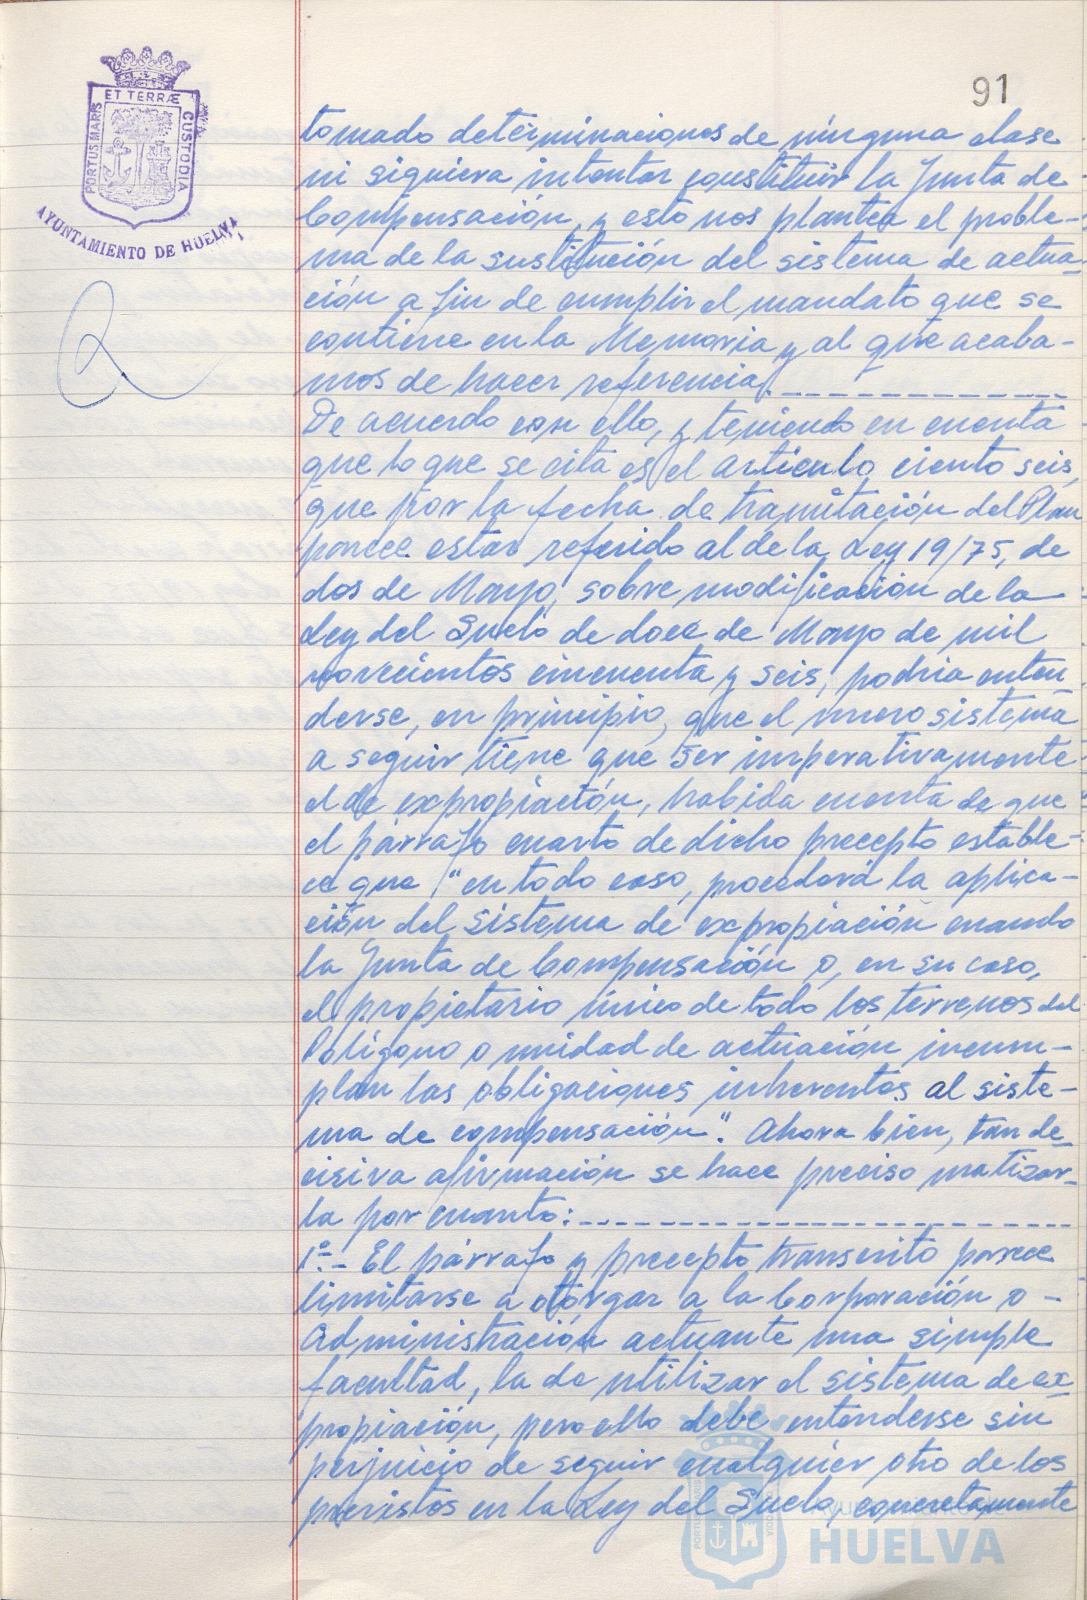 91
ET TERRÆ
PORTUS MARIS
CUSTODIA
AYUNTAMIENTO DE HUELVA
tomado determinaciones de ninguna clase
ni siquiera intentar constituir la Junta de
Compensación, y esto nos plantea el proble-
ma de la sustitución del sistema de actua-
ción a fin de cumplir el mandato que se
contiene en la Memoria y al que acaba-
mos de hacer referencia.
De acuerdo con ello, y teniendo en cuenta
que lo que se cita es el artículo ciento seis,
que por la fecha de tramitación del Plan
parece estar referido al de la Ley 19/75, de
dos de Mayo, sobre modificación de la
Ley del Suelo de doce de Mayo de mil
novecientos cincuenta y seis, podría enten
derse, en principio, que el nuevo sistema
a seguir tiene que ser imperativamente
el de expropiación, habida cuenta de que
el párrafo cuarto de dicho precepto estable-
ce que "en todo caso, procederá la aplica-
ción del sistema de expropiación cuando
la Junta de Compensación o, en su caso,
el propietario único de todo los terrenos del
Polígono o unidad de actuación incum-
plan las obligaciones inherentes al siste-
ma de compensación". Ahora bien, tan de-
cisiva afirmación se hace preciso matizar-
la por cuanto:
1º.- El párrafo y precepto transcrito parece
limitarse a otorgar a la Corporación o -
Administración actuante una simple
facultad, la de utilizar el sistema de ex
propiación, pero ello debe entenderse sin
perjuicio de seguir cualquier otro de los
previstos en la Ley del Suelo, concretamente
HUELVA